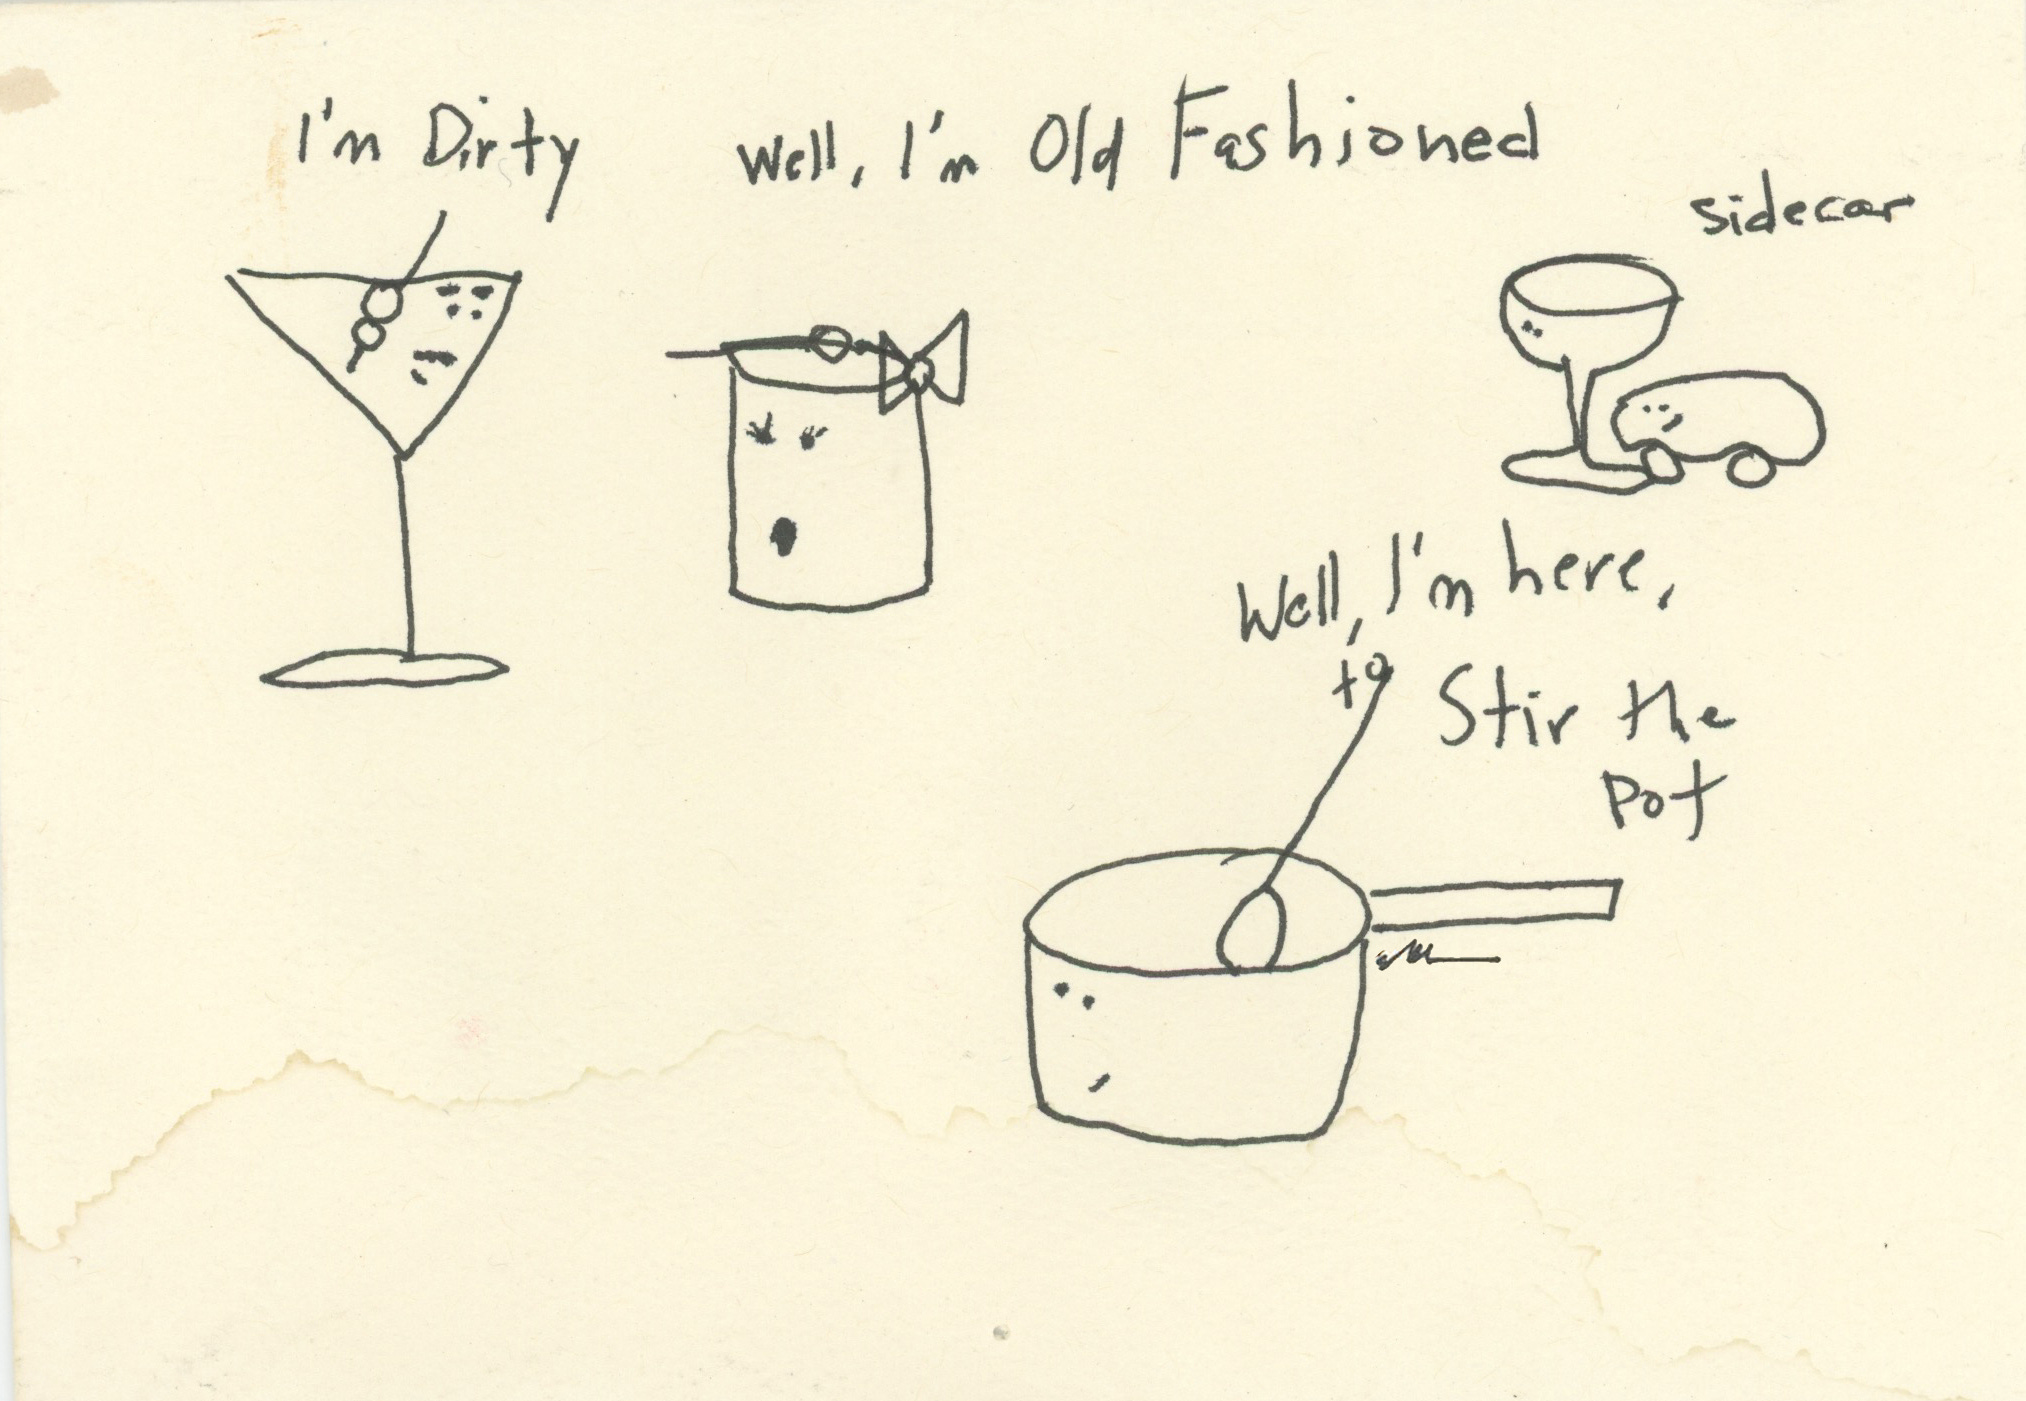 I'm Dirty
Well, I'm Old Fashioned
sidecar
Well, I'm here,
to
Stir the
Pot